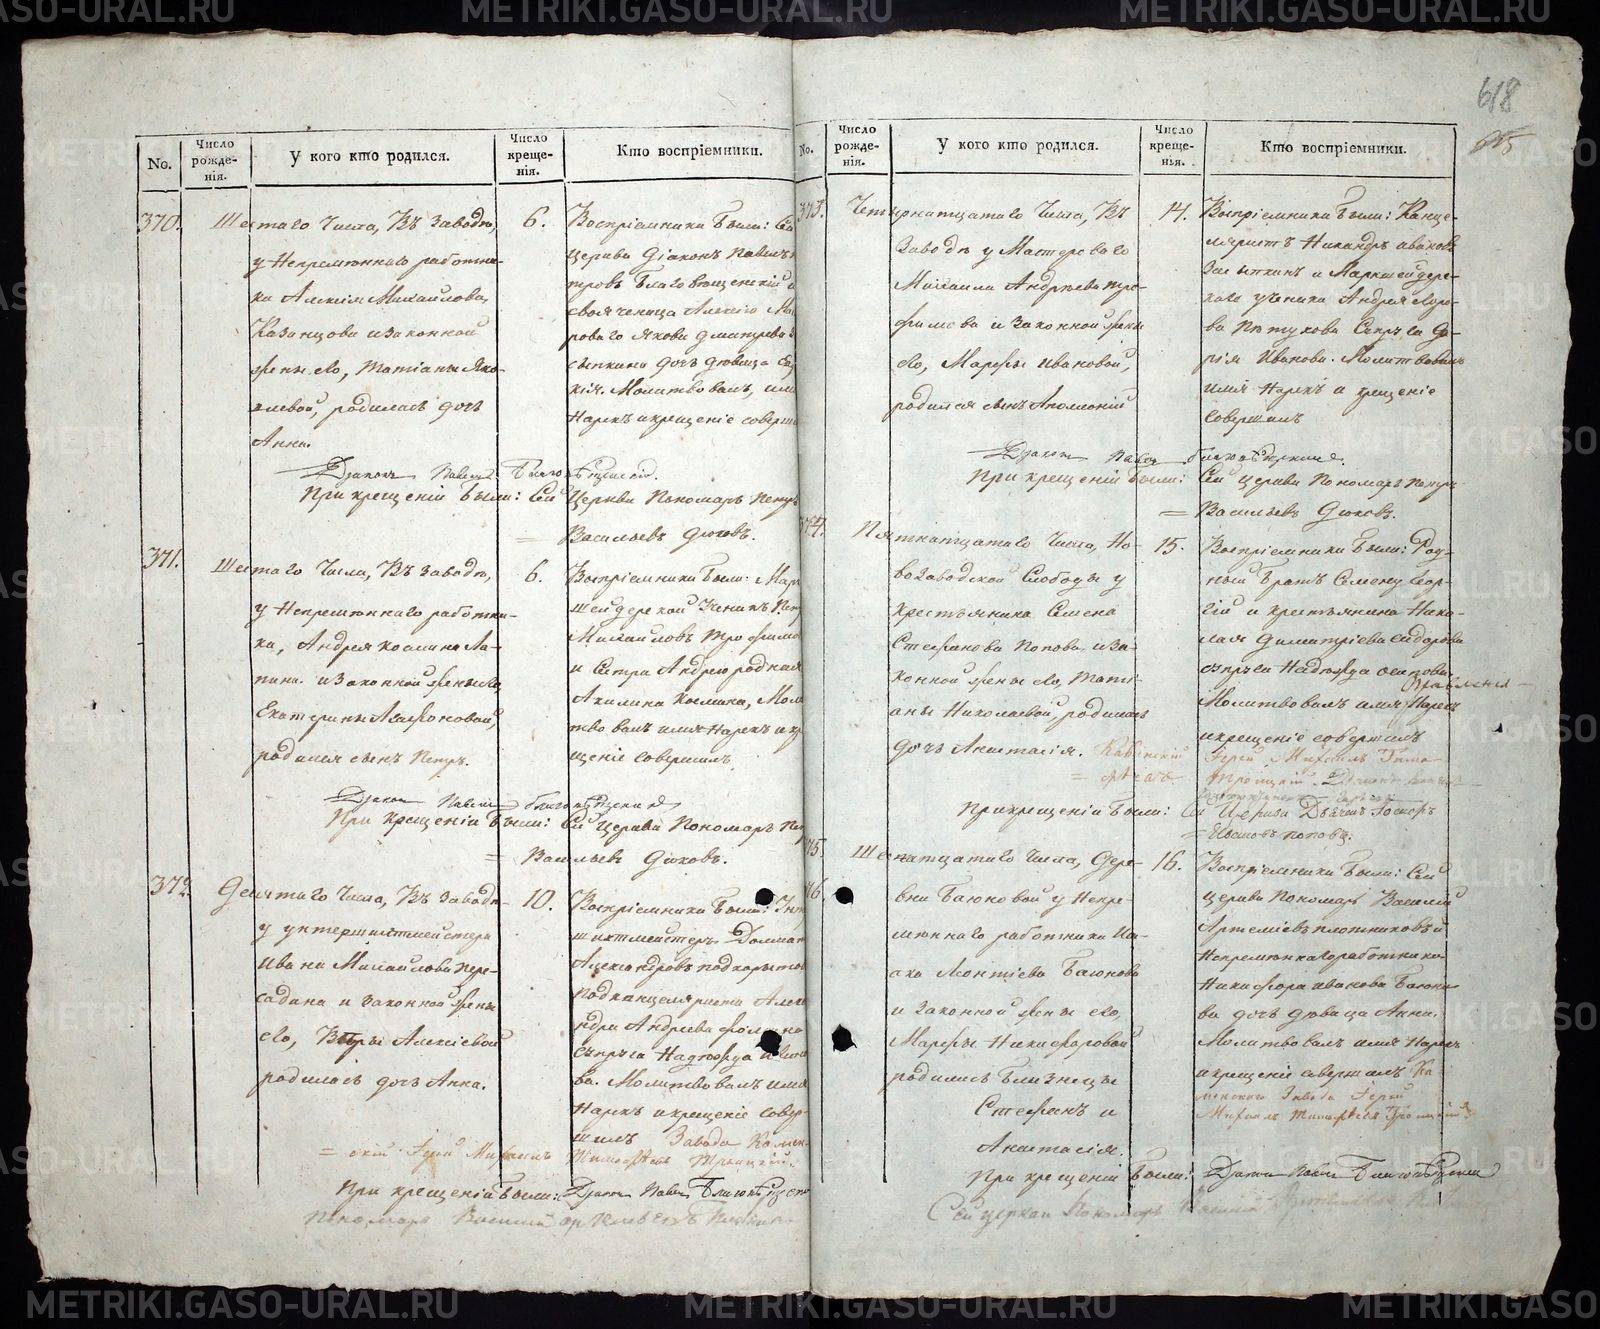 618
No.
Число рожде-нія.
У кого кто родился.
Число креще-нія.
Кто воспріемники.
370.
Шестаго Числа, Въ Заводѣ,
у Непремѣннаго работни-
ка Алексѣя Михайлова
Казанцова и законной
жены его, Татіаны Яко-
влевой, родилась дочь
Анна.
6.
Воспріемники были:
Церкви Діаконъ Павелъ
тровъ Благовѣщенскій
Алексѣя
роваго Якова Дмитріева
дочь дѣвица
Молитвовалъ, имя
Нарекъ и крещеніе соверши
Діаконъ Павелъ Благовѣщенскій.
При крещеніи были: Сей Церкви Пономарь Петръ
Васильевъ Дюковъ.
371.
Шестаго Числа, Въ Заводѣ,
у Непремѣннаго работни-
ка, Андрея Космина Ла-
пина и законной жены его,
Екатерины Агафоновой,
родился сынъ Петръ.
6.
Воспріемники были: Мар
шейдерской Ученикъ
Михайловъ Трофимо
и Сестра Андрею родная
Акилина Космина, Моли
твовалъ имя Нарекъ и кр
щеніе Совершилъ
Діаконъ Павелъ Благовѣщенскій
При крещеніи были: Сей Церкви Пономарь
Васильевъ Дюковъ.
372.
Девятаго Числа, Въ Заводѣ
у унтершихтмейстера
Ивана Михайлова Пере-
садина и законной жены
его, Вѣры Алексѣевой
родилась дочь Анна.
10.
Воспріемники были:
шихтмейстеръ
Александровъ Подкорыто
Подканцеляриста Алекса
ндра Андреева
Супруга Надѣжда
ва. Молитвовалъ имя
Нарекъ и крещеніе Совер-
шилъ Завода Камен-
= скій Іерей Михаилъ Тимофѣевъ Троицкій.
При крещеніи были: Діаконъ Павелъ Благовѣщенс
Пономарь Василій Артемьевъ
No.
Число рожде-нія.
У кого кто родился.
Число креще-нія.
Кто воспріемники.
373.
Четырнатцатаго Числа, Въ
Заводѣ у Мастероваго
Михаила Андрѣева Тро-
фимова и законной жены
его, Марфы Ивановой,
родился сынъ Аполлоній
14.
Воспріемники были: Канце-
ляристъ Никандръ Ивановъ
Засыпкинъ и Маркшейдерс-
каго ученика Андрея Его-
ва Пѣтухова Супруга Да-
рія Иванова. Молитвовалъ
имя Нарекъ и крещеніе
Совершилъ
Діаконъ Павелъ Благовѣщенскій.
При крещеніи были: Сей Церкви Пономарь Петръ
= Васильевъ Дюковъ.
374.
Пятнатцатаго Числа, Но-
возаводской Слободы у
Крестьянина Семена
Стефанова Попова и за-
конной жены его, Тати-
аны Николаевой родилась
дочь Анастасія.
15.
Воспріемники были: Род-
ный братъ Семену Геор-
гій и крестьянина Нико-
лая Димитріева Сидорова
Супруга Надѣжда Осипова
Молитвовалъ имя Нарекъ
и крещеніе совершилъ
Іерей Михаилъ Тимо
Троицкій
При крещеніи были: Сей Церкви Дьячекъ
= Ивановъ Поповъ.
75.
76.
Шестнатцатаго Числа, Дере-
вни Баюновой у Непре-
мѣннаго работника Иса-
ака Леонтіева Баюнова
и законной жены его,
Марфы Никифоровой
родились Близнецы
Стефанъ и
Анастасія.
16.
Воспріемники были: Сей
церкви Пономарь Василій
Артеміевъ Плотниковъ и
Непремѣннаго работника
Никифора Иванова Баюно-
ва дочь дѣвица Анна.
Молитвовалъ имя Нарекъ
и крещеніе совершилъ Ка-
менскаго Завода Іерей
Михаилъ Тимофѣевъ Троицкій
При крещеніи были: Діаконъ Павелъ Благовѣщенскій
Сей церкви Пономарь Василій Артемьевъ
METRIKI.GASO-URAL.RU